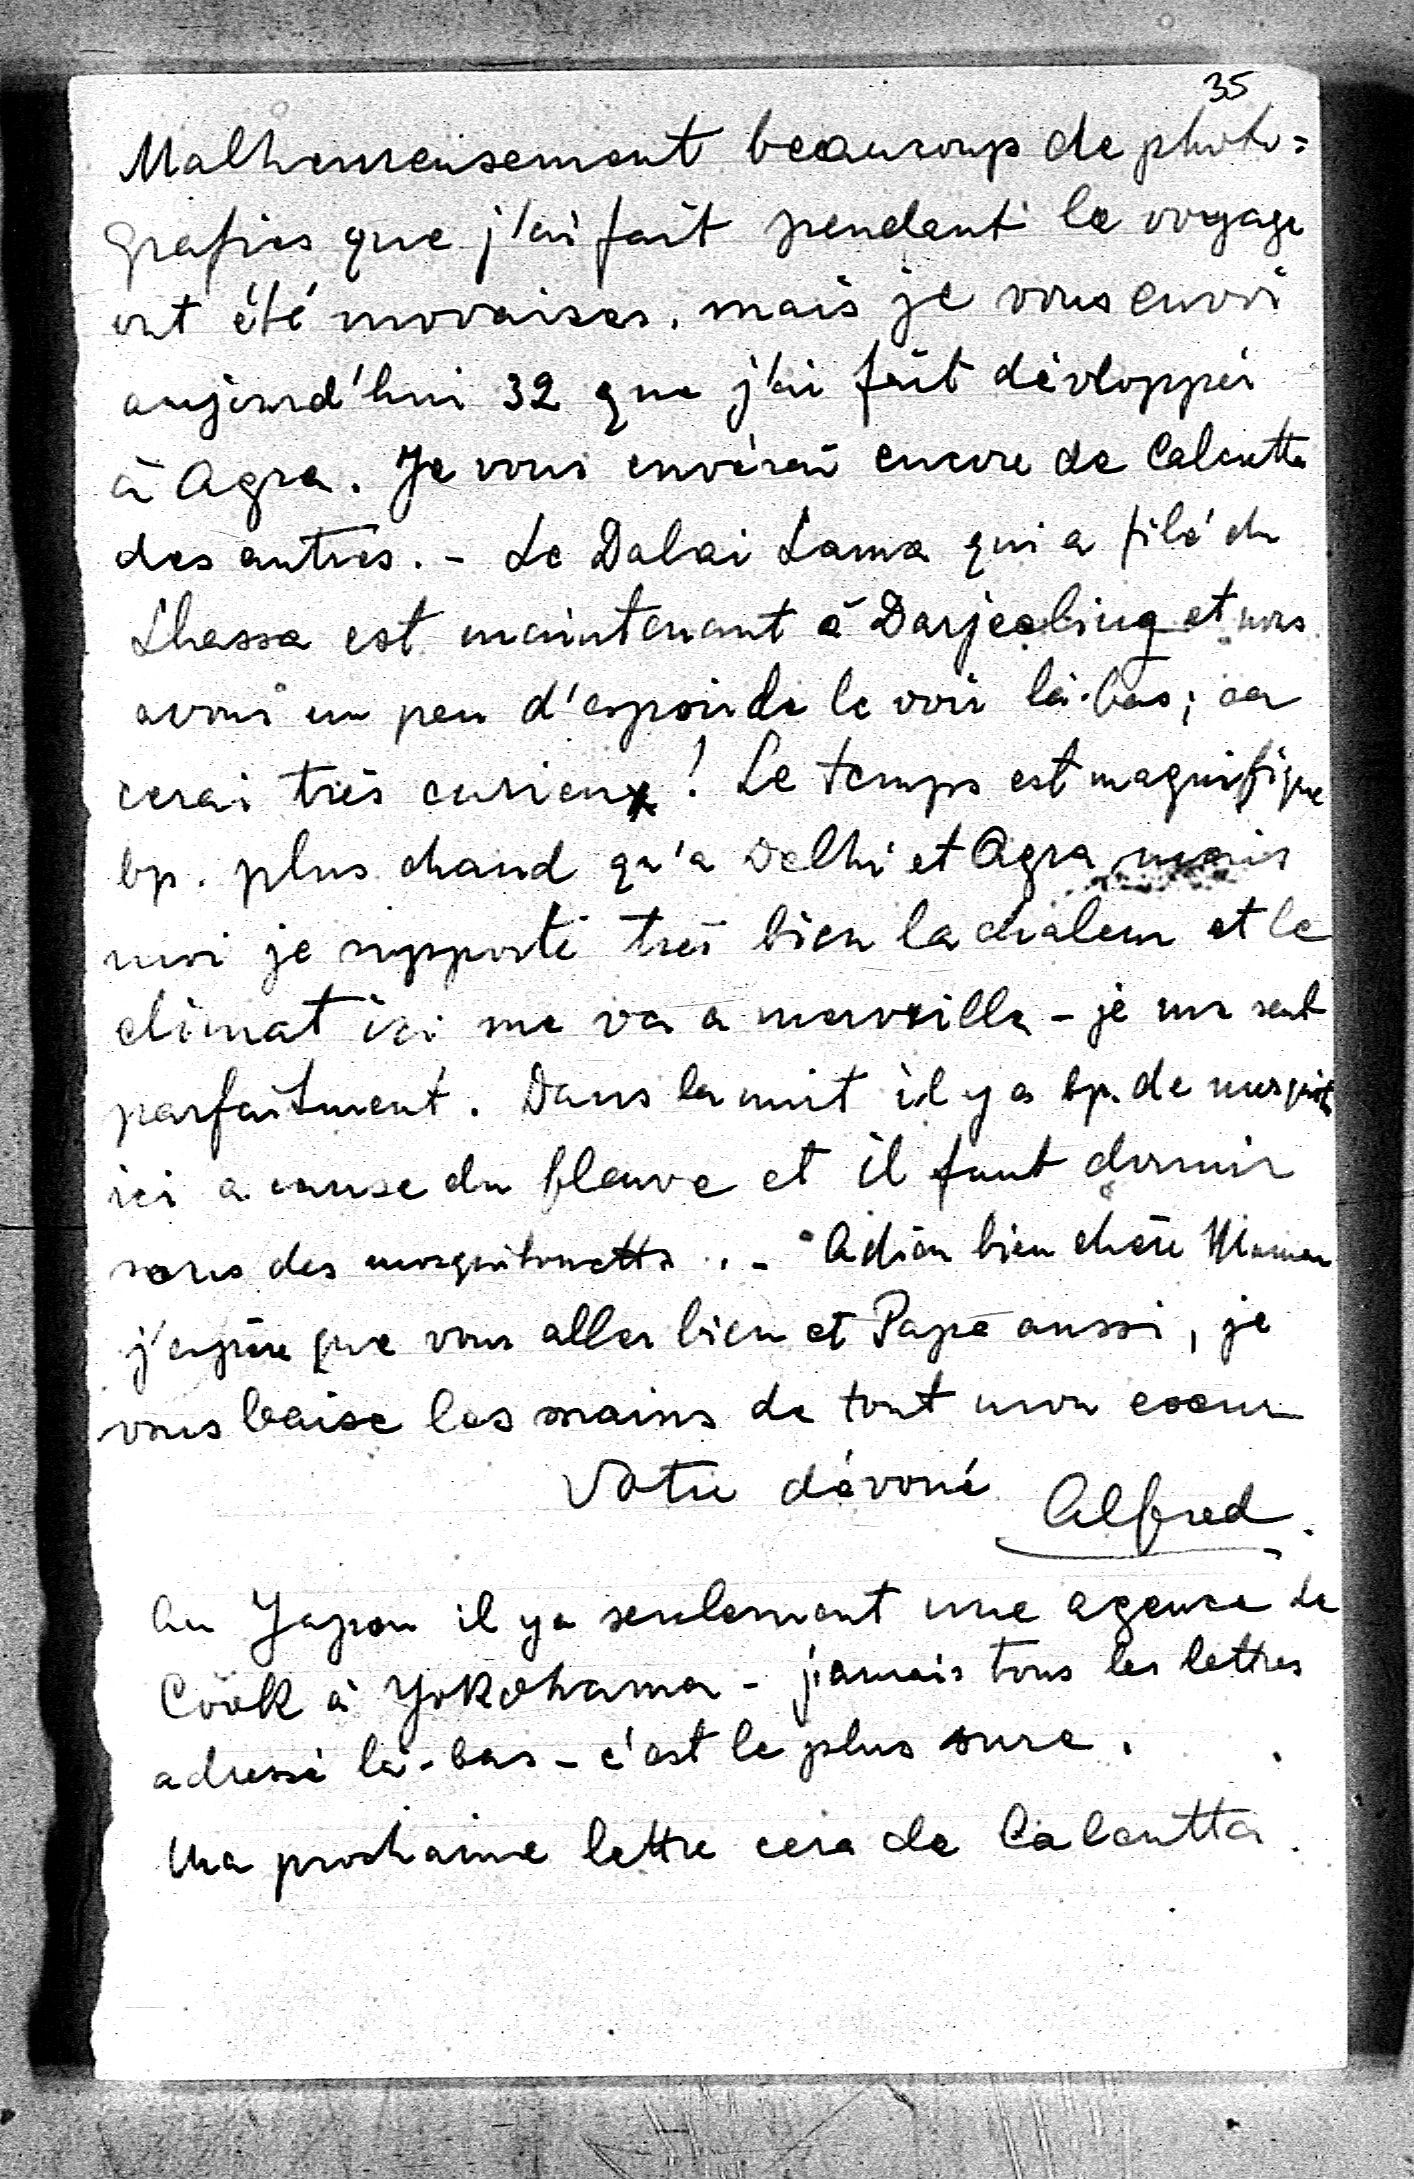 35
Malheureusement beaucoup de photo=
grafies que j'ai fait pendant le voyage
ont été movaises, mais je vous envoi
aujourd'hui 32 que j'ai fait dévloppér
à Agra. Je vous envérai encore de Calcutta
des autres. - Le Dalai Lama qui a filé du
Lhassa est maintenant à Darjeeling et nous
avons un peu d'espoir de le voir là-bas; ça
cerai très curieux! Le temps est magnifique
bp. plus chaud qu'a Delhi et Agra mais
moi je supporte très bien la chaleur et le
climat ici me va a merveille - je me sent
parfaitment. Dans la nuit il y a bp. de mosquits
ici a cause du fleuve et il faut dormir
sous des mosquitonetts. - Adieu bien chère Maman
j'espère que vous aller bien et Papa aussi, je
vous baise les mains de tout mon coeur
Votre dévoué
Alfred.
Au Japon il ya seulement une agence de
Cook à Yokohama - j'aurais tous les lettres
adressé là-bas - c'est le plus sure.
Ma prochaine lettre cera de Calcutta.